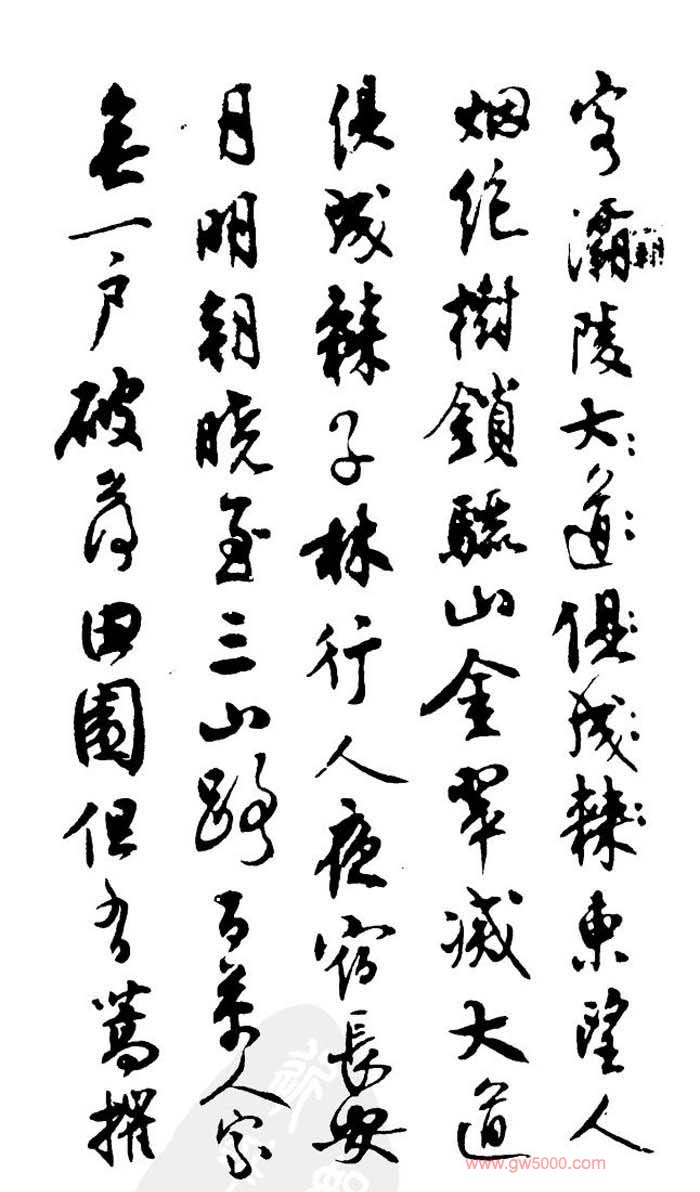 客灞陵大道俱成棘東望人
烟绝樹鎖驪山金翠滅大道
俱成棘子林行人夜宿長安
月明朝曉至三山路百萬人家
無一户破落田園但有蒿摧
www.gw5000.com